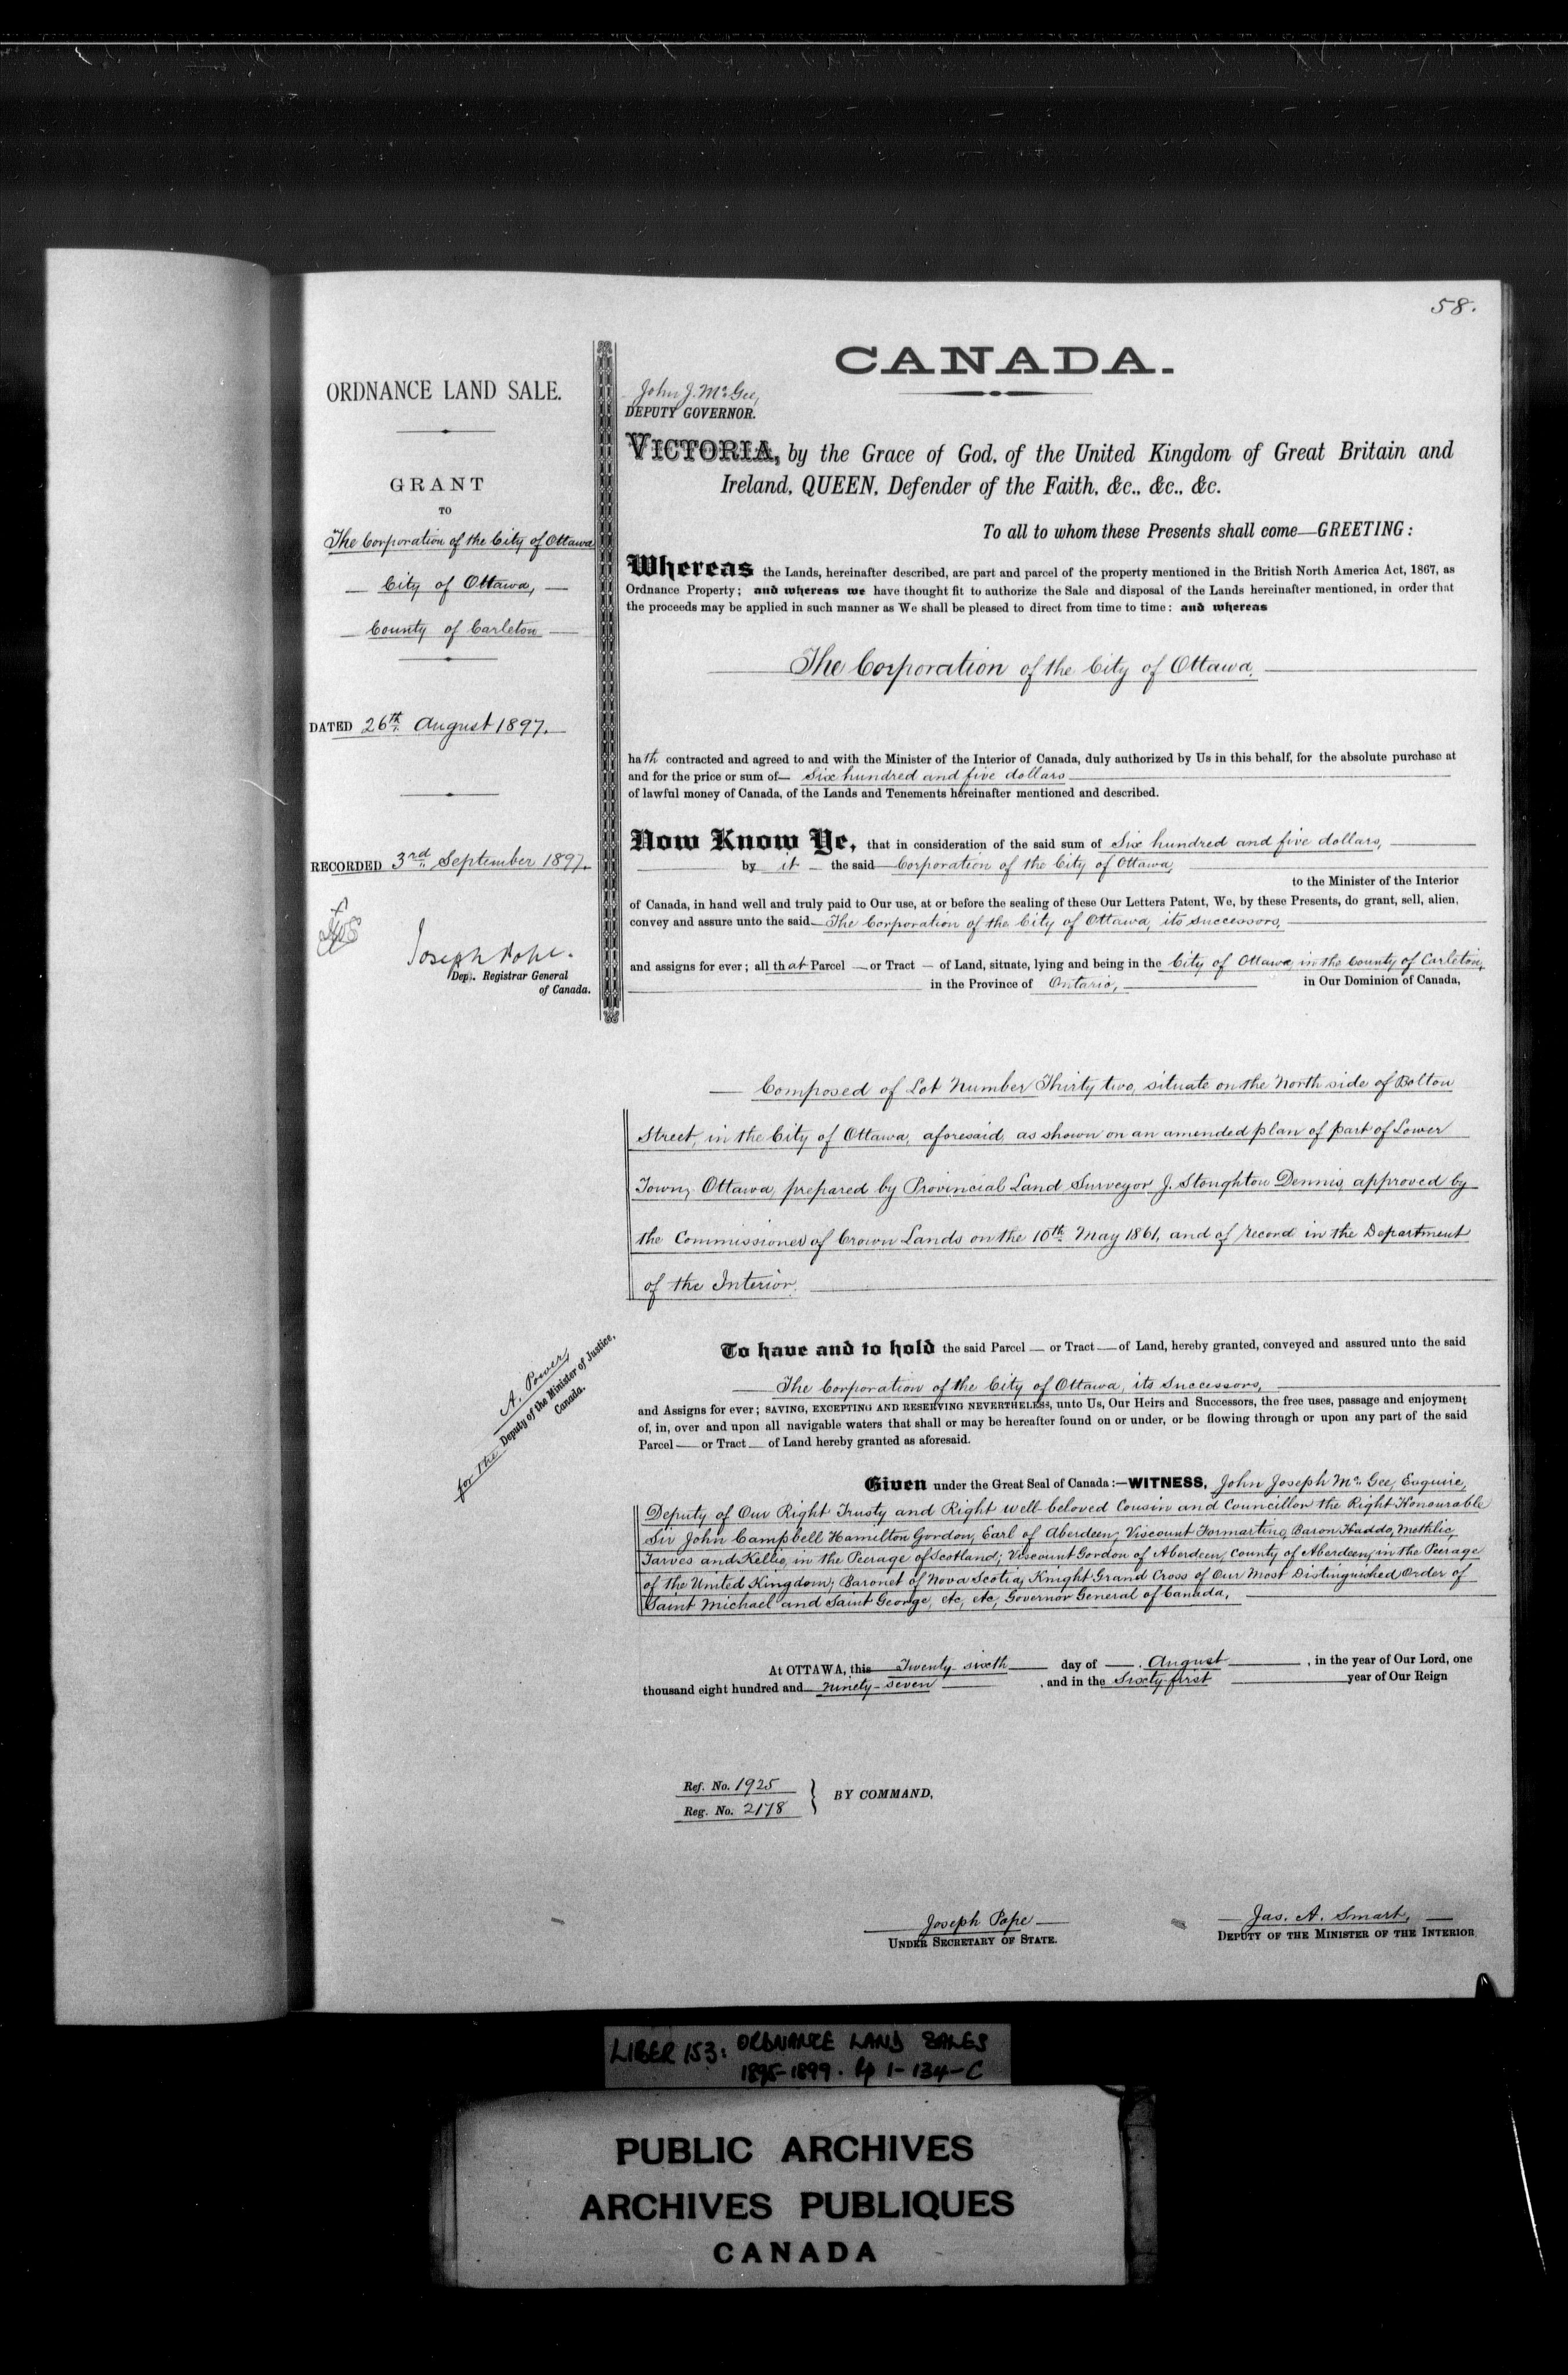 58.
CANADA.
ORDNANCE LAND SALE.
GRANT
TO
The Corporation of the City of Ottawa
City of Ottawa,
County of Carleton
DATED 26th August 1897.
RECORDED 3rd September 1897.
Joseph Pope.
Dep. Registrar General
of Canada.
John J. McGee,
DEPUTY GOVERNOR.
VICTORIA, by the Grace of God, of the United Kingdom of Great Britain and
Ireland, QUEEN, Defender of the Faith, &c., &c., &c.
To all to whom these Presents shall come—GREETING:
Whereas the Lands, hereinafter described, are part and parcel of the property mentioned in the British North America Act, 1867, as
Ordnance Property; and whereas we have thought fit to authorize the Sale and disposal of the Lands hereinafter mentioned, in order that
the proceeds may be applied in such manner as We shall be pleased to direct from time to time: and whereas
The Corporation of the City of Ottawa,
hath contracted and agreed to and with the Minister of the Interior of Canada, duly authorized by Us in this behalf, for the absolute purchase at
and for the price or sum of— Six hundred and five dollars
of lawful money of Canada, of the Lands and Tenements hereinafter mentioned and described.
Now Know Ye, that in consideration of the said sum of Six hundred and five dollars,
by it the said Corporation of the City of Ottawa,
to the Minister of the Interior
of Canada, in hand well and truly paid to Our use, at or before the sealing of these Our Letters Patent, We, by these Presents, do grant, sell, alien,
convey and assure unto the said The Corporation of the City of Ottawa, its successors,
and assigns for ever; all that Parcel — or Tract — of Land, situate, lying and being in the City of Ottawa, in the County of Carleton,
in the Province of Ontario, in Our Dominion of Canada,
Composed of Lot Number Thirty two, situate on the North side of Bolton
Street, in the City of Ottawa, aforesaid, as shown on an amended plan of part of Lower
Town, Ottawa, prepared by Provincial Land Surveyor J. Stoughton Dennis, approved by
the Commissioner of Crown Lands on the 10th May 1861, and of record in the Department
of the Interior.
A. Power,
for the Deputy of the Minister of Justice,
Canada.
To have and to hold the said Parcel — or Tract — of Land, hereby granted, conveyed and assured unto the said
The Corporation of the City of Ottawa, its Successors,
and Assigns for ever; SAVING, EXCEPTING AND RESERVING NEVERTHELESS, unto Us, Our Heirs and Successors, the free uses, passage and enjoyment
of, in, over and upon all navigable waters that shall or may be hereafter found on or under, or be flowing through or upon any part of the said
Parcel — or Tract — of Land hereby granted as aforesaid.
Given under the Great Seal of Canada:—WITNESS, John Joseph McGee, Esquire,
Deputy of Our Right Trusty and Right well-beloved Cousin and Councillor the Right Honourable
Sir John Campbell Hamilton Gordon, Earl of Aberdeen; Viscount Formartine, Baron Haddo, Methlic,
Tarves and Kellie, in the Peerage of Scotland; Viscount Gordon of Aberdeen, County of Aberdeen, in the Peerage
of the United Kingdom; Baronet of Nova Scotia; Knight Grand Cross of Our Most Distinguished Order of
Saint Michael and Saint George, etc, etc, Governor General of Canada,
At OTTAWA, this Twenty-sixth day of August, in the year of Our Lord, one
thousand eight hundred and ninety-seven, and in the Sixty-first year of Our Reign
Ref. No. 1925
Reg. No. 2178
BY COMMAND,
Joseph Pope
UNDER SECRETARY OF STATE.
Jas. A. Smart,
DEPUTY OF THE MINISTER OF THE INTERIOR
LIBER 153: ORDNANCE LAND SALES
1895-1899. 1-134-C
PUBLIC ARCHIVES
ARCHIVES PUBLIQUES
CANADA